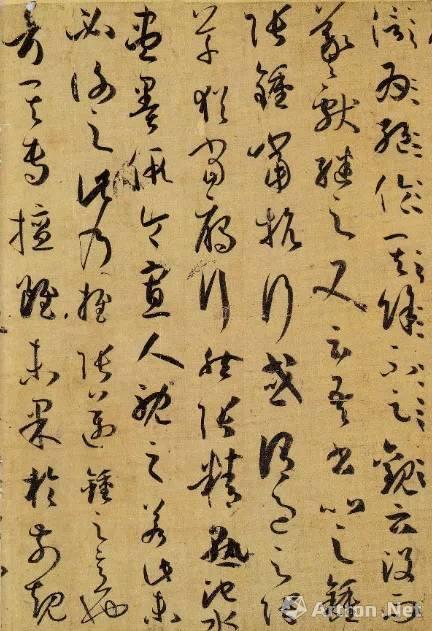 信為絕倫其餘不足觀云沒而
羲獻繼之又云吾書比之鍾
張鍾當抗行或謂過之張
草猶當鴈行然張精熟池水
盡墨假令寡人耽之若此未
必謝之此乃推張邁鍾之意也
考其專擅雖未果於前規
Artron.Net